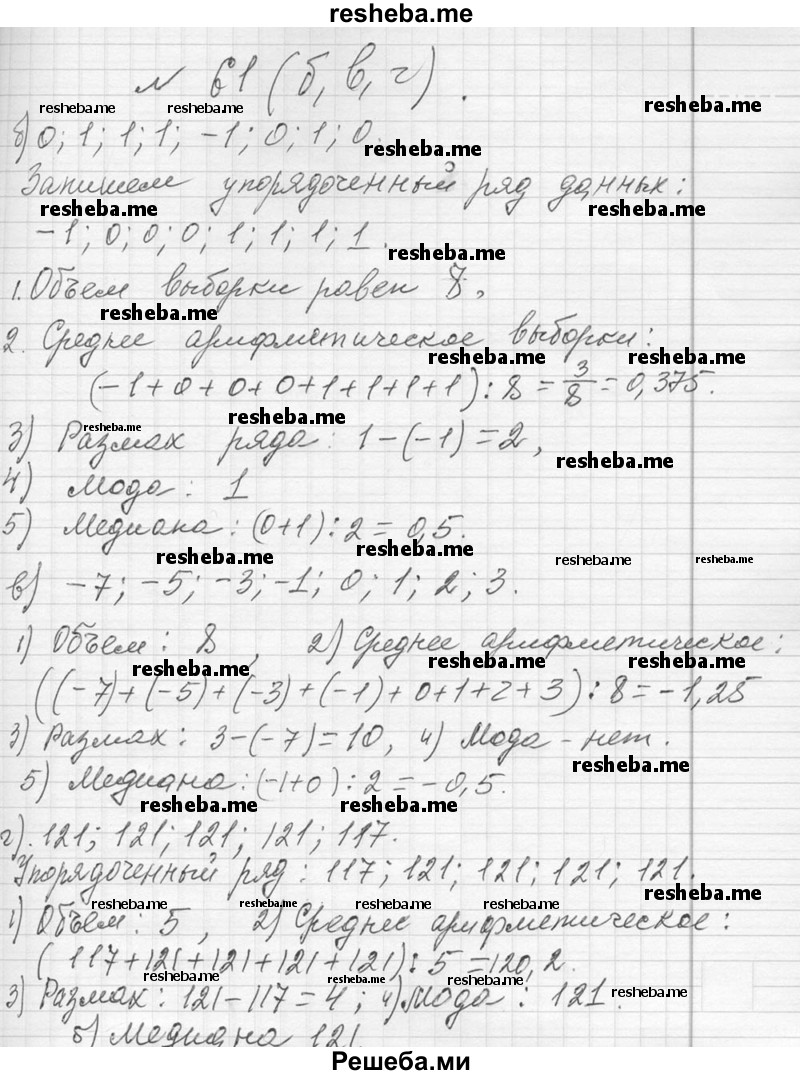 resheba.me
№ 61 (б, в, г).
resheba.me resheba.me resheba.me
б) 0; 1; 1; 1; -1; 0; 1; 0.
resheba.me
Запишем упорядоченный ряд данных:
resheba.me resheba.me
-1; 0; 0; 0; 1; 1; 1; 1.
resheba.me
1. Объем выборки равен 8,
resheba.me
2. Среднее арифметическое выборки:
resheba.me resheba.me
(-1+0+0+0+1+1+1+1) : 8 = 3/8 = 0,375.
resheba.me resheba.me
3) Размах ряда: 1-(-1)=2,
resheba.me
4) Мода: 1
5) Медиана: (0+1) : 2 = 0,5.
resheba.me resheba.me resheba.me resheba.me
в) -7; -5; -3; -1; 0; 1; 2; 3.
1) Объем: 8, 2) Среднее арифметическое:
resheba.me resheba.me resheba.me
((-7)+(-5)+(-3)+(-1)+0+1+2+3) : 8 = -1,25
3) Размах: 3-(-7)=10, 4) Мода - нет.
resheba.me
5) Медиана: (-1+0) : 2 = -0,5.
resheba.me resheba.me
г). 121; 121; 121; 121; 117.
Упорядоченный ряд: 117; 121; 121; 121; 121.
resheba.me
resheba.me resheba.me resheba.me resheba.me
1) Объем: 5, 2) Среднее арифметическое:
(117+121+121+121+121) : 5 = 120,2.
resheba.me resheba.me resheba.me resheba.me
3) Размах: 121-117=4; 4) Мода: 121.
5) Медиана 121.
Решеба.ми